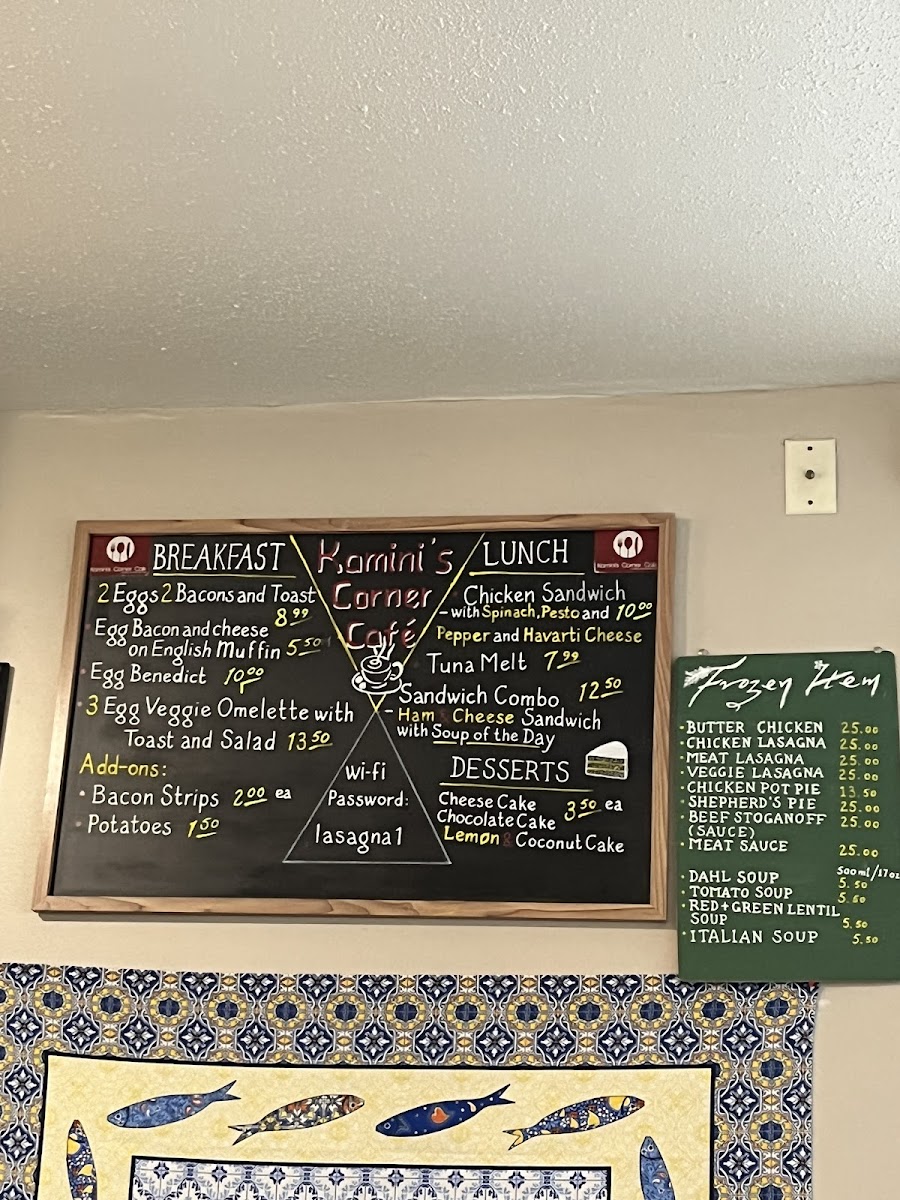 Kamini's Corner Café
BREAKFAST
2 Eggs 2 Bacons and Toast
8.99
Egg Bacon and cheese
on English Muffin 5.50
Egg Benedict 10.00
3 Egg Veggie Omelette with
Toast and Salad 13.50
Add-ons:
Bacon Strips 2.00 ea
Potatoes 1.50
Kamini's
Corner
Café
wi-fi
Password:
lasagna1
Kamini's Corner Café
LUNCH
Chicken Sandwich
- with Spinach, Pesto and 10.00
Pepper and Havarti Cheese
Tuna Melt 7.99
Sandwich Combo 12.50
- Ham & Cheese Sandwich
with Soup of the Day
DESSERTS
Cheese Cake 3.50 ea
Chocolate Cake
Lemon & Coconut Cake
Frozen Item
BUTTER CHICKEN 25.00
CHICKEN LASAGNA 25.00
MEAT LASAGNA 25.00
VEGGIE LASAGNA 25.00
CHICKEN POT PIE 13.50
SHEPHERD'S PIE 25.00
BEEF STOGANOFF 25.00
(SAUCE)
MEAT SAUCE 25.00
500ml/17oz
DAHL SOUP 5.50
TOMATO SOUP 5.50
RED+GREEN LENTIL
SOUP 5.50
ITALIAN SOUP 5.50